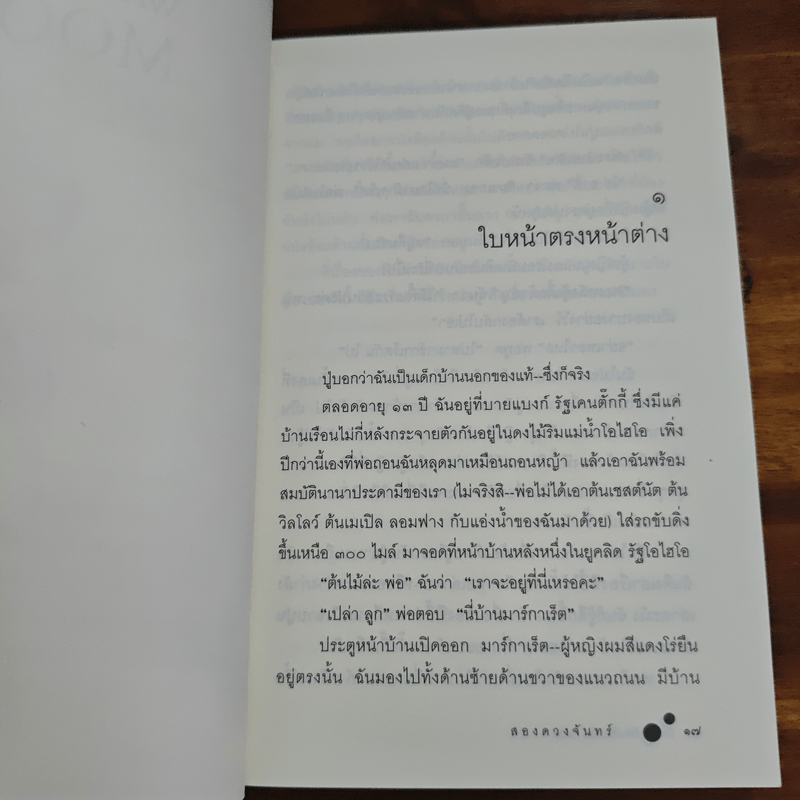 MOO
๑
ใบหน้าตรงหน้าต่าง
ปู่บอกว่าฉันเป็นเด็กบ้านนอกของแท้--ซึ่งก็จริง
ตลอดอายุ ๑๓ ปี ฉันอยู่ที่บายแบงก์ รัฐเคนตั๊กกี้ ซึ่งมีแค่
บ้านเรือนไม่กี่หลังกระจายตัวกันอยู่ในดงไม้ริมแม่น้ำโอไฮโอ เพิ่ง
ปีกว่านี้เองที่พ่อถอนฉันหลุดมาเหมือนถอนหญ้า แล้วเอาฉันพร้อม
สมบัตินานาประดามีของเรา (ไม่จริงสิ--พ่อไม่ได้เอาต้นเชสต์นัต ต้น
วิลโลว์ ต้นเมเปิล ลอมฟาง กับแอ่งน้ำของฉันมาด้วย) ใส่รถขับดิ่ง
ขึ้นเหนือ ๓๐๐ ไมล์ มาจอดที่หน้าบ้านหลังหนึ่งในยูคลิด รัฐโอไฮโอ
“ต้นไม้ล่ะ พ่อ” ฉันว่า “เราจะอยู่ที่นี่เหรอคะ”
“เปล่า ลูก” พ่อตอบ “นี่บ้านมาร์กาเร็ต”
ประตูหน้าบ้านเปิดออก มาร์กาเร็ต--ผู้หญิงผมสีแดงโร่ยืน
อยู่ตรงนั้น ฉันมองไปทั้งด้านซ้ายด้านขวาของแนวถนน มีบ้าน
สองดวงจันทร์ ๑๗